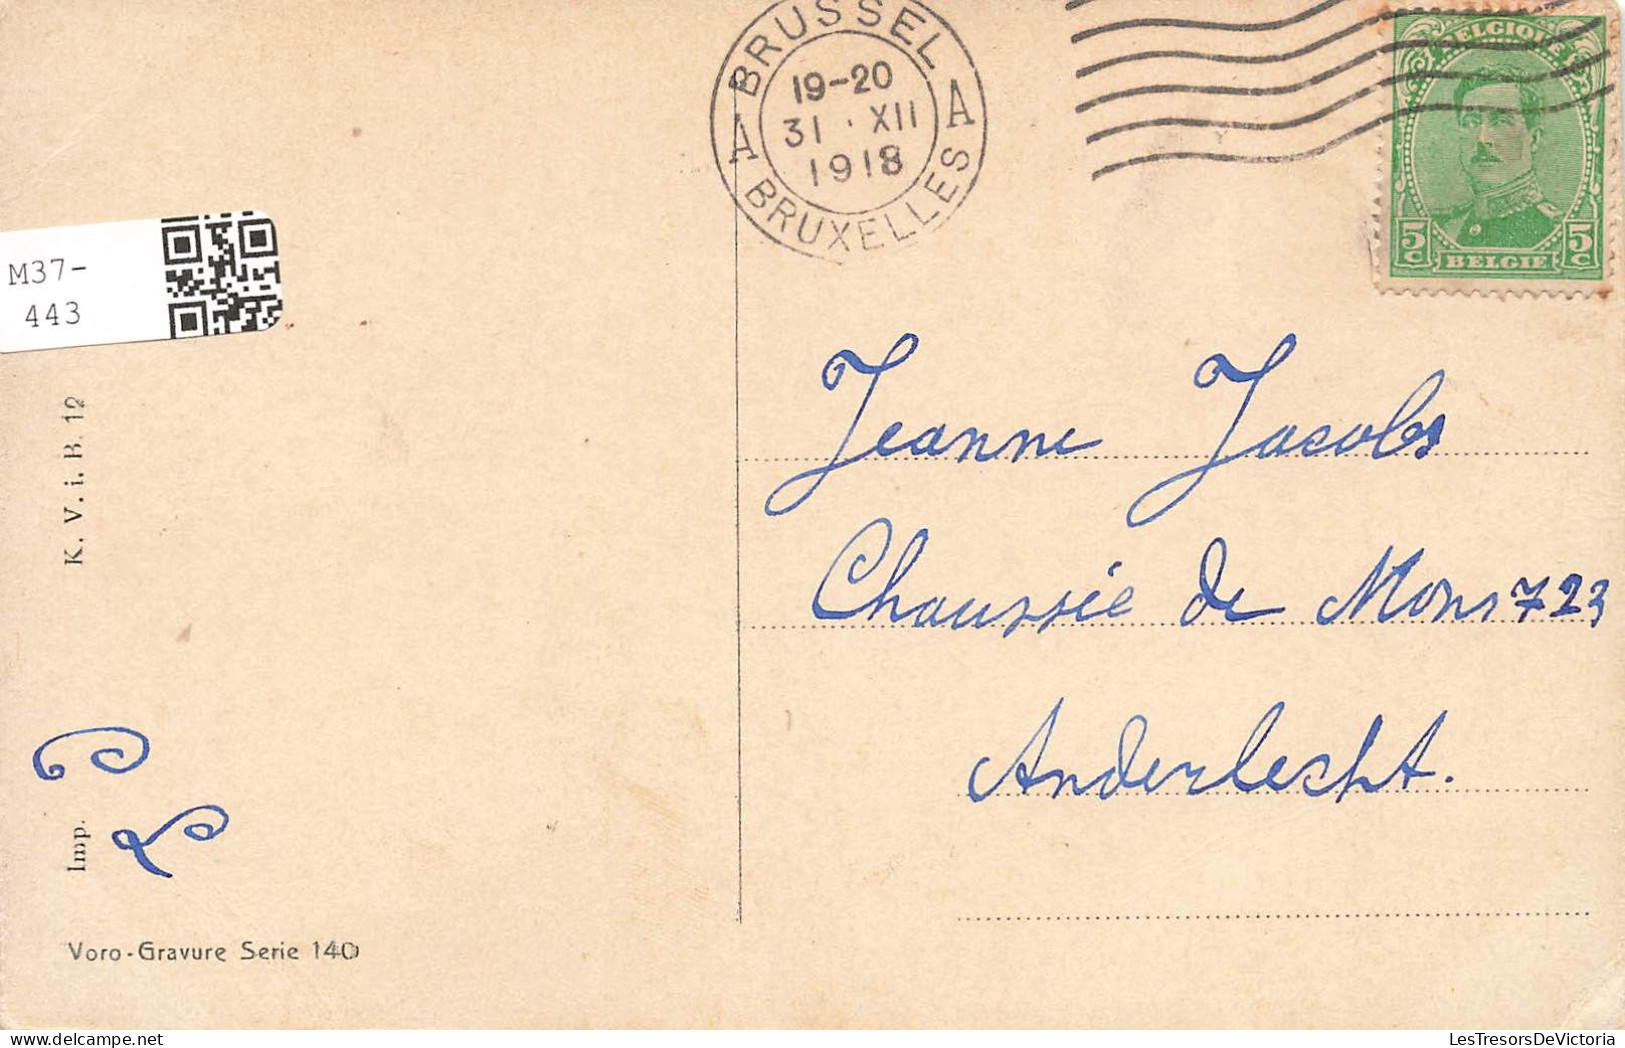 BRUSSEL
19-20
31 · XII
1918
A A
BRUXELLES
BELGIQUE
5c 5c
BELGIE
M37-
443
K. V. i. B. 12
Jeanne Jacobs
Chaussée de Mons 723
Anderlecht.
Imp.
Voro-Gravure Serie 140
LesTresorsDeVictoria.com